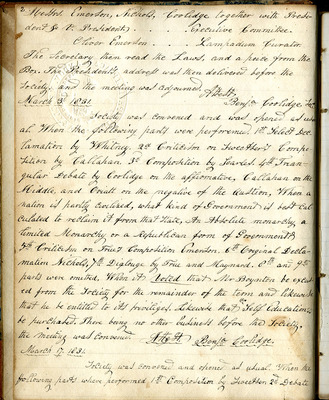 2 Messrs. Emerson, Nichols, Coolidge together with Presi-
dent & V. President, Executive Committee.
Oliver Emerson Lampadum Curator.
The Secretary then read the Laws, and a piece from the
Box. The President's address was then delivered before the
Society, and the meeting was adjourned.
Benj. Coolidge, Sec
March 3. 1831.
Society was convened and was opened as usu-
al. When the following parts were performed. 1st Select Dec-
lamation by Whitney. 2d Criticism on Sweetser's Compo-
sition by Callahan. 3d Composition by Searles. 4th Trian-
gular Debate by Coolidge on the affirmative, Callahan on the
Middle, and Orcutt on the negative of the Question. When a
nation is partly civilized, what kind of Government is best cal-
culated to reclaim it from that state, An Absolute monarchy, a
limited Monarchy or a Republican form of Government?
5th Criticism on True's Composition Emerson. 6th Original Decla-
mation Nichols. 7th Dialogue by True and Maynard. 8th and 9th
parts were omitted. When it Voted that Mr Boynton be excus-
ed from the Society for the remainder of the term and likewise
that he be entitled to its privileges. Likewise that "Self Education"
be purchased. There being no other business before the Society,
the meeting was convened. Benj. Coolidge.
March 17. 1831.
Society was convened and opened as usual. When the
following parts were performed. 1st Composition by Sweetser. 2d Debate